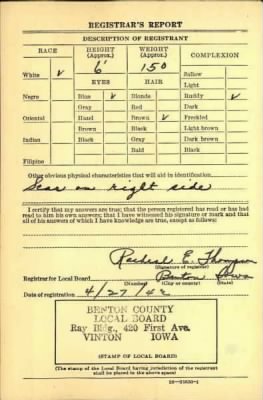 REGISTRAR'S REPORT
DESCRIPTION OF REGISTRANT
RACE HEIGHT (Approx.) WEIGHT (Approx.) COMPLEXION
White ✓ 6' 150 Sallow
EYES HAIR Light
Negro Blue ✓ Blonde Ruddy ✓
Gray Red Dark
Oriental Hazel Brown ✓ Freckled
Brown Black Light brown
Indian Black Gray Dark brown
Bald Black
Filipino
Other obvious physical characteristics that will aid in identification
Scar on right side
I certify that my answers are true; that the person registered has read or has had
read to him his own answers; that I have witnessed his signature or mark and that
all of his answers of which I have knowledge are true, except as follows:
Racheal E. Thompson
(Signature of registrar)
Registrar for Local Board Benton Iowa
(Number) (City or county) (State)
Date of registration 4/27/42
BENTON COUNTY
LOCAL BOARD
Ray Bldg., 420 First Ave.
VINTON IOWA
(STAMP OF LOCAL BOARD)
(The stamp of the Local Board having jurisdiction of the registrant
shall be placed in the above space)